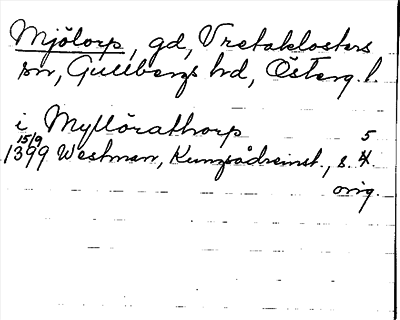 Mjölorp, gd, Vretaklosters
sn, Gullbergs hd, Österg. l.
i Myllörathorp
15/9 5
1399 Westman, Kungsrådsinst., s. 4.
orig.